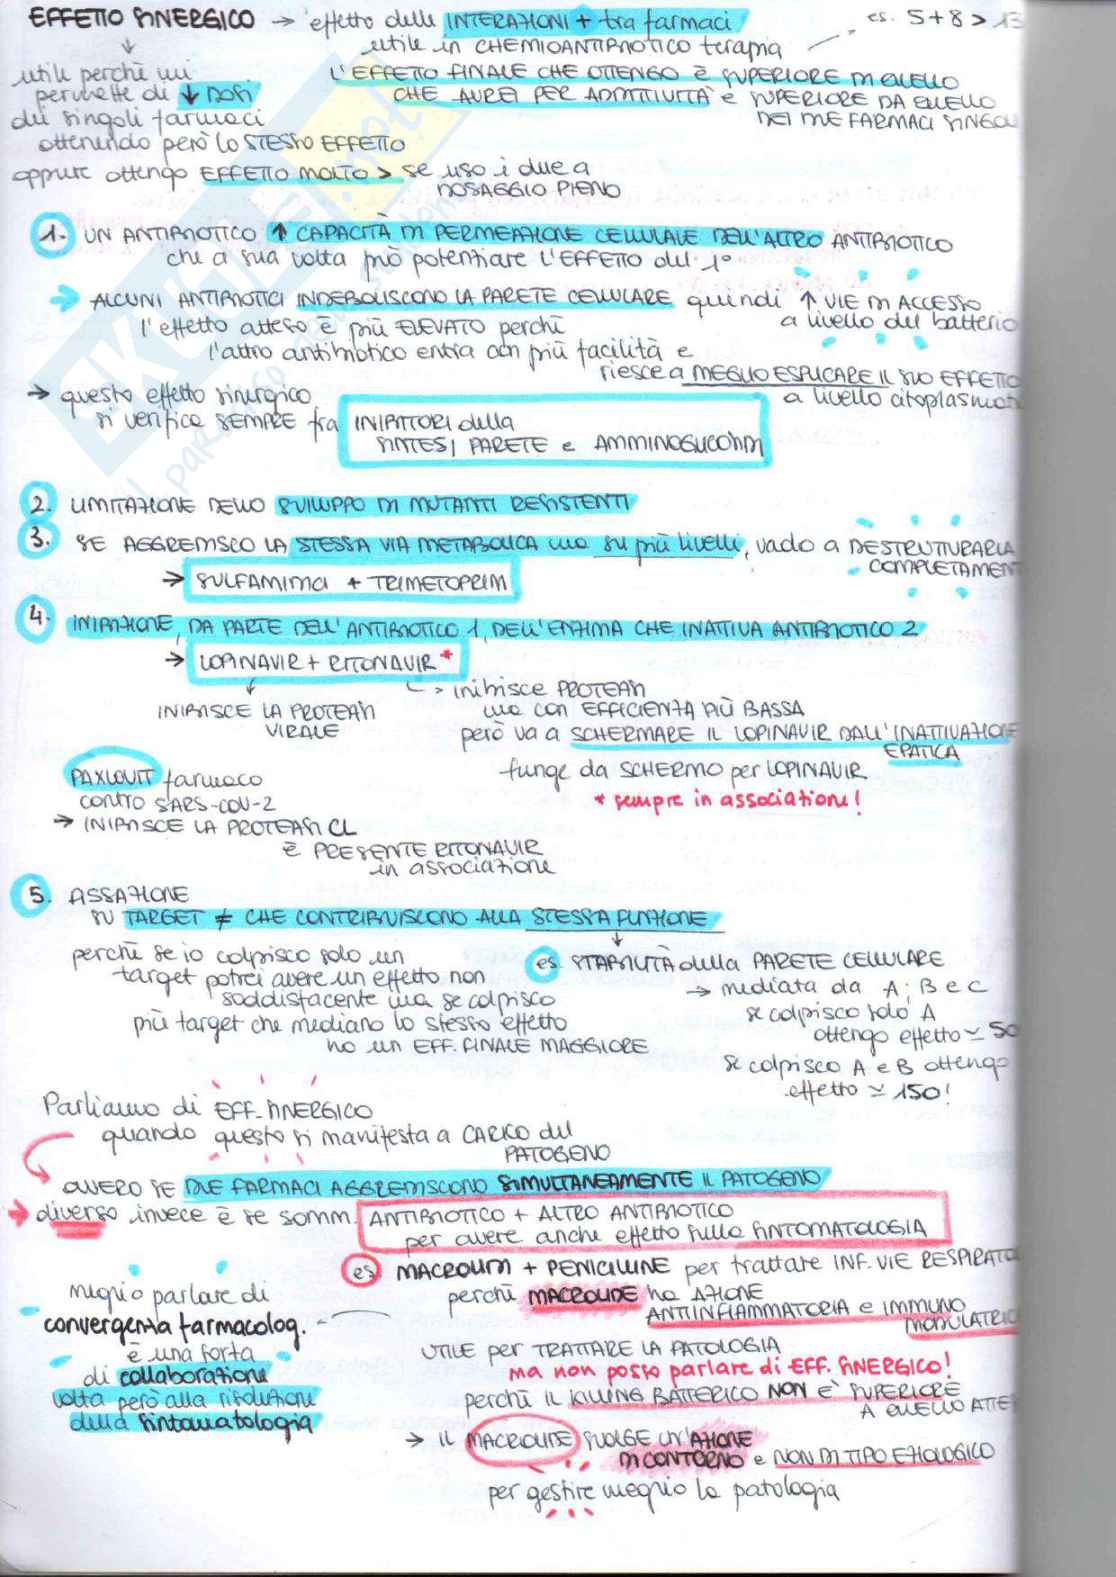 EFFETTO SINERGICO → effetto delle INTERAZIONI + tra farmaci es. 5+8 > 13
utile in CHEMIOANTIBIOTICO terapia
utile perchè mi permette di ↓ DOSI dei singoli farmaci ottenendo però lo STESSO EFFETTO
L'EFFETTO FINALE CHE OTTENGO È SUPERIORE DI QUELLO
CHE AUREI PER ADDITIVITÀ e SUPERIORE DA QUELLO
DEI DUE FARMACI SINGOLI
oppure ottengo EFFETTO MOLTO > se uso i due a
DOSAGGIO PIENO
1. UN ANTIBIOTICO ↑ CAPACITÀ DI PERMEAZIONE CELLULARE DELL'ALTRO ANTIBIOTICO
che a sua volta può potenziare L'EFFETTO del 1°
→ ALCUNI ANTIBIOTICI INDEBOLISCONO LA PARETE CELLULARE quindi ↑ VIE DI ACCESSO
a livello del batterio
l'effetto atteso è più ELEVATO perchè
l'altro antibiotico entra con più facilità e
riesce a MEGLIO ESPLICARE IL SUO EFFETTO
a livello citoplasmat
→ questo effetto sinergico
si verifica SEMPRE fra INIBITORI della
SINTESI PARETE e AMMINOGLICOSIDI
2. LIMITAZIONE DELLO SVILUPPO DI MUTANTI RESISTENTI
3. SE AGGREDISCO LA STESSA VIA METABOLICA ma su più livelli, vado a DESTRUTTURARLA
COMPLETAMENT
→ SULFAMIDICI + TRIMETOPRIM
4. INIBIZIONE, DA PARTE DELL'ANTIBIOTICO 1, DELL'ENZIMA CHE INATTIVA ANTIBIOTICO 2
→ LOPINAVIR + RITONAVIR *
INIBISCE LA PROTEASI
VIRALE
→ inibisce PROTEASI
ma con EFFICIENZA PIÙ BASSA
però va a SCHERMARE IL LOPINAVIR DALL'INATTIVAZIONE
EPATICA
funge da SCHERMO per LOPINAVIR
* sempre in associazione!
PAXLOVIT farmaco
contro SARS-COV-2
→ INIBISCE LA PROTEASI CL
È PRESENTE RITONAVIR
in associazione
5. ASSAZIONE
SU TARGET ≠ CHE CONTRIBUISCONO ALLA STESSA FUNZIONE
perchè se io colpisco solo un
target potrei avere un effetto non
soddisfacente ma se colpisco
più target che mediano lo stesso effetto
ho un EFF. FINALE MAGGIORE
es. STABILITÀ della PARETE CELLULARE
→ mediata da A; B e C
se colpisco solo A
ottengo effetto ≃ 50
se colpisco A e B ottengo
effetto ≃ 150!
Parliamo di EFF. SINERGICO
quando questo si manifesta a CARICO del
PATOGENO
OVVERO SE DUE FARMACI AGGREDISCONO SIMULTANEAMENTE IL PATOGENO
→ diverso invece è se somm. ANTIBIOTICO + ALTRO ANTIBIOTICO
per avere anche effetto sulla SINTOMATOLOGIA
es MACROLIDI + PENICILLINE per trattare INF. VIE RESPIRATO
perchè MACROLIDE ha AZIONE
ANTINFIAMMATORIA e IMMUNO
MODULATRIC
UTILE per TRATTARE LA PATOLOGIA
ma non posso parlare di EFF. SINERGICO!
perchè IL KILLING BATTERICO NON È SUPERIORE
A QUELLO ATTE
meglio parlare di
convergenza farmacolog.
è una sorta
di collaborazione
volta però alla risoluzione
della sintomatologia
→ IL MACROLIDE SVOLGE UN'AZIONE
DI CONTORNO e NON DI TIPO EZIOLOGICO
per gestire meglio la patologia
SKUOLA.net